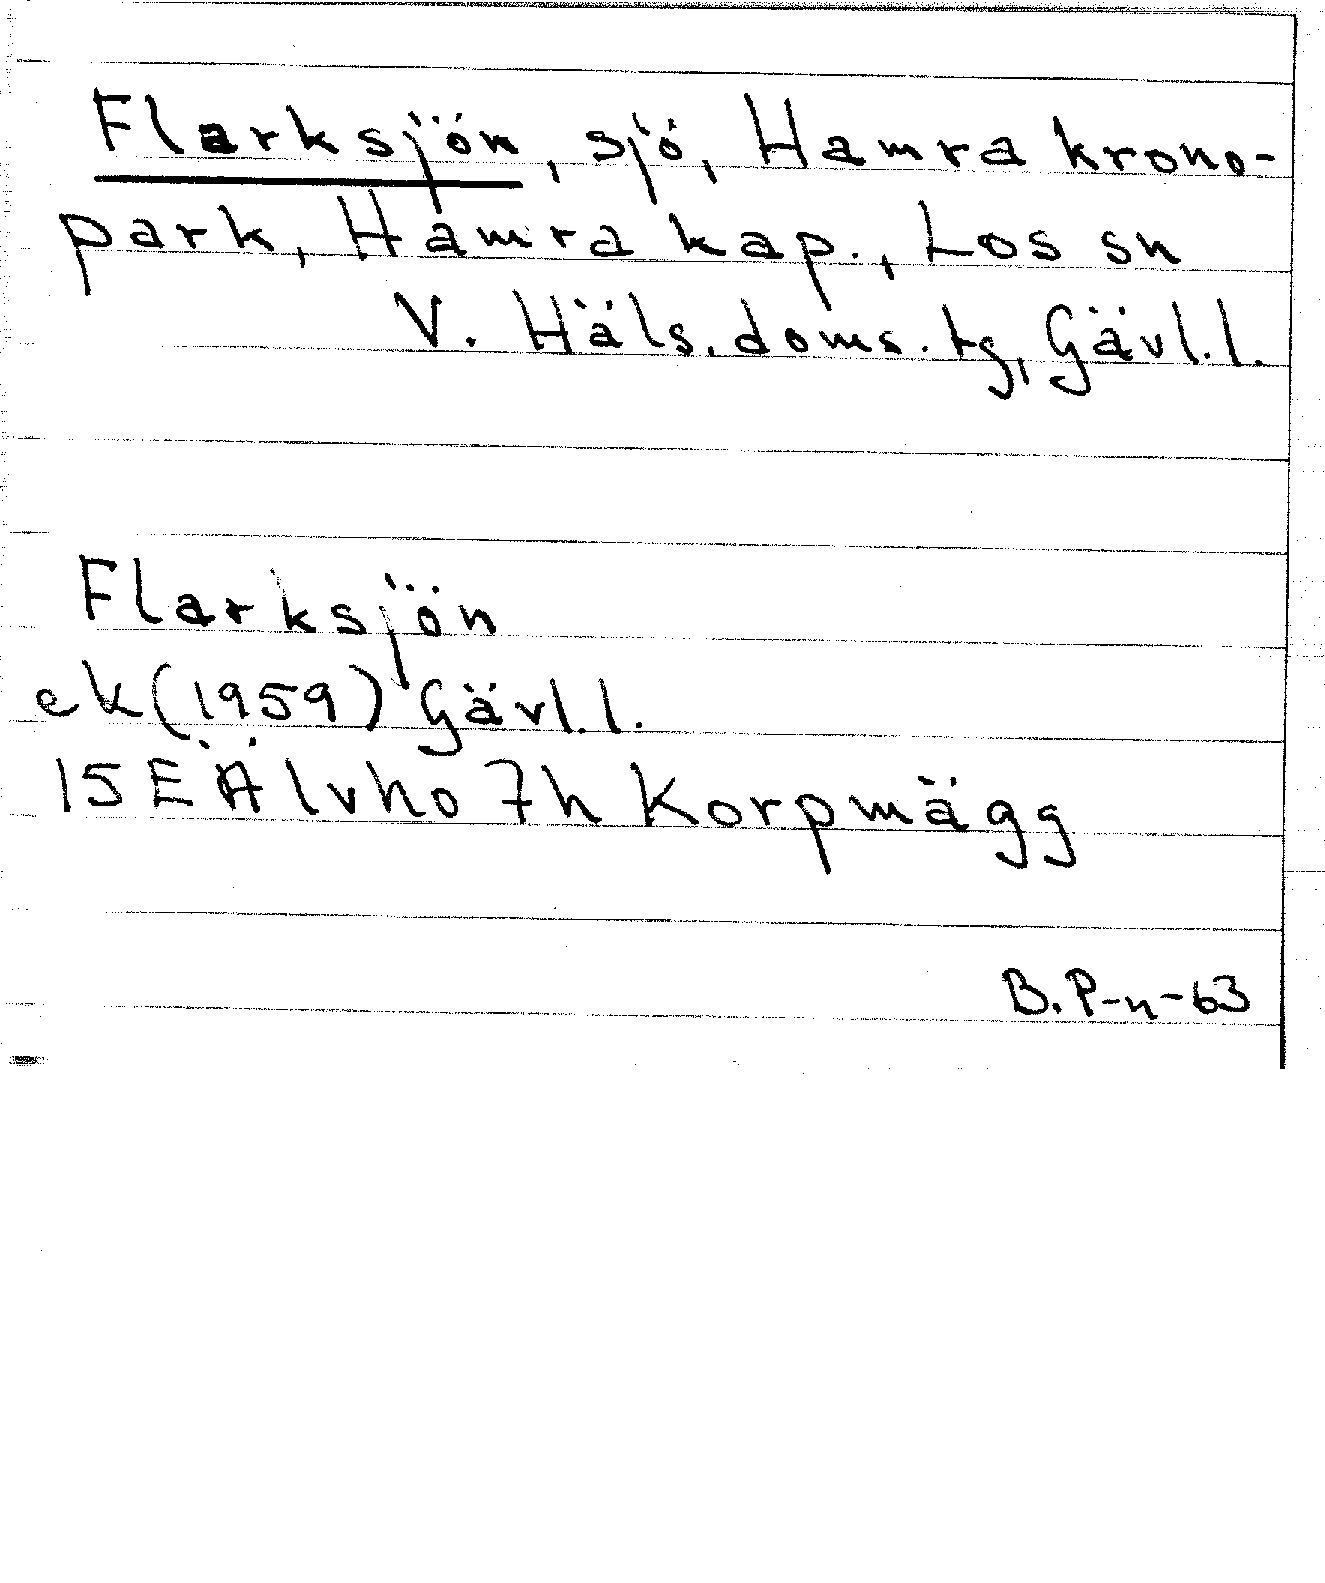 Flarksjön, sjö, Hamra krono-
park, Hamra kap., Los sn
V. Häls. doms. tg, Gävl.l.
Flarksjön
ek(1959) Gävl.l.
15E Älvho 7h Korpmägg
B.P-n-63